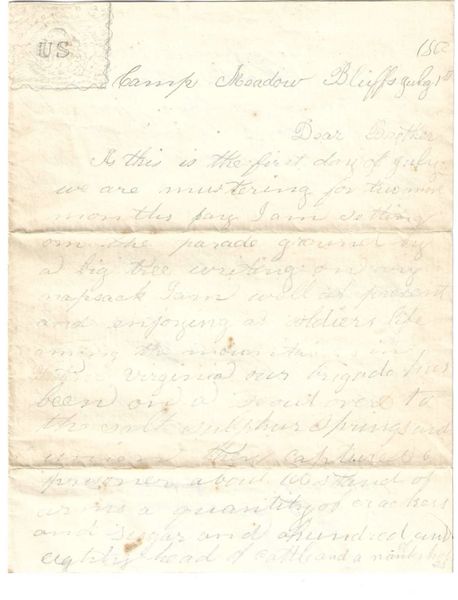 US
Camp Meadow Bluffs July 1st
Dear Brother
As this is the first day of July
we are mustering for two more
months pay I am setting
on the parade ground by
a big tree writing on my
napsack I am well at present
and enjoying a soldiers life
among the mountains in
Virginia our brigade has
been on a scout over to
the salt sulphur springs and
union they captured 6
prisoner about 100 stand of
arms a quantity of crackers
and sugar and a hundred and
eightty head of cattle and a